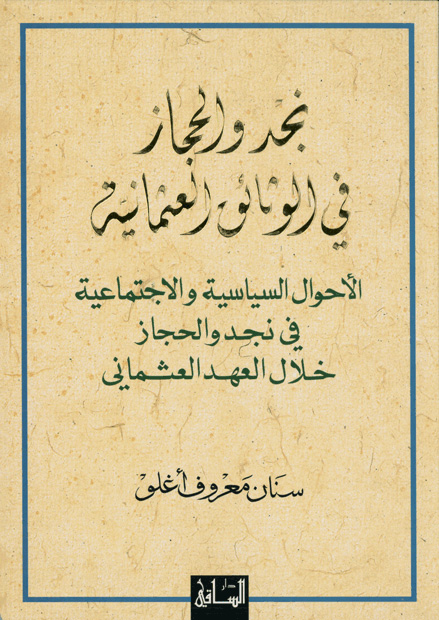 نجد والحجاز
في الوثائق العثمانية
الأحوال السياسية والاجتماعية
في نجد والحجاز
خلال العهد العثماني
سنان معروف أغلق
دار
الساقي